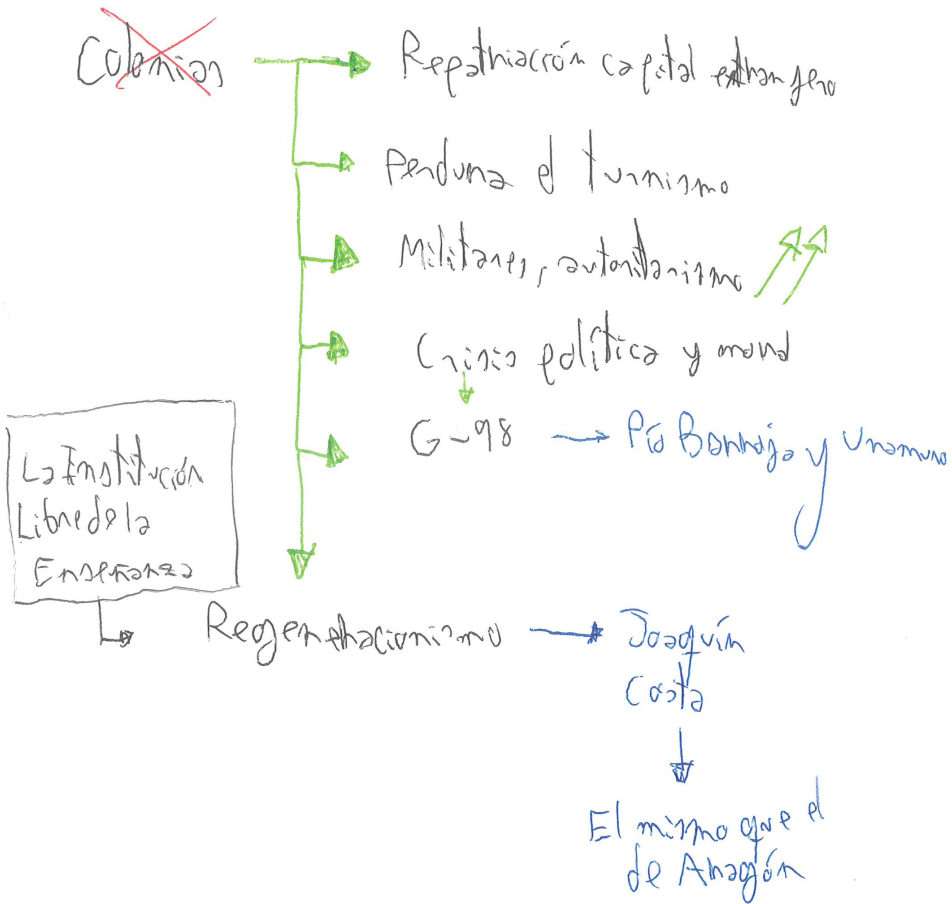 Colonias
Repatriación capital extranjero
Perdura el turnismo
Militares, autoritarismo
Crisis política y moral
G-98
Pío Barroja y Unamuno
La Institución
Libre de la
Enseñanza
Regeneracionismo
Joaquín
Costa
El mismo que el
de Aragón